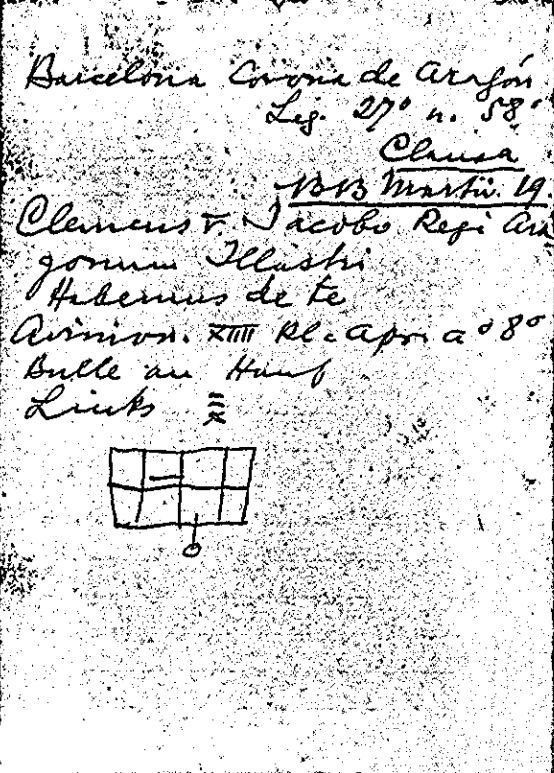 Barcelona Corona de Aragón
Leg. 27° n. 58°
Clausa
1313 Martii. 19.
Clemens V. Jacobo Regi Ara
gonum Illustri
Habemus de te
Avinion. XIIII Kl. Apr. a° 8°
Bulle an Hanf
Links